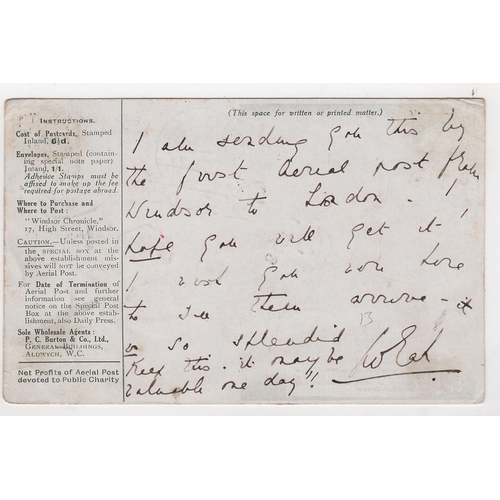 INSTRUCTIONS.
Cost of Postcards, Stamped
Inland, 6½d.
Envelopes, Stamped (contain-
ing special note paper)
Inland, 1/1.
Adhesive Stamps must be
affixed to make up the fee
required for postage abroad.
Where to Purchase and
Where to Post :
"Windsor Chronicle,"
17, High Street, Windsor.
CAUTION.—Unless posted in
the SPECIAL BOX at the
above establishment mis-
sives will NOT be conveyed
by Aerial Post.
For Date of Termination of
Aerial Post and further
information see general
notice on the Special Post
Box at the above estab-
lishment, also Daily Press.
Sole Wholesale Agents :
P. C. Burton & Co., Ltd.,
GENERAL BUILDINGS,
ALDWYCH, W.C.
Net Profits of Aerial Post
devoted to Public Charity
(This space for written or printed matter.)
I am sending you this by
the first aerial post from
Windsor to London. I
hope you will get it!
I wish you were here
to see them arrive - it
is so splendid
Keep this. it may be
valuable one day!!
13